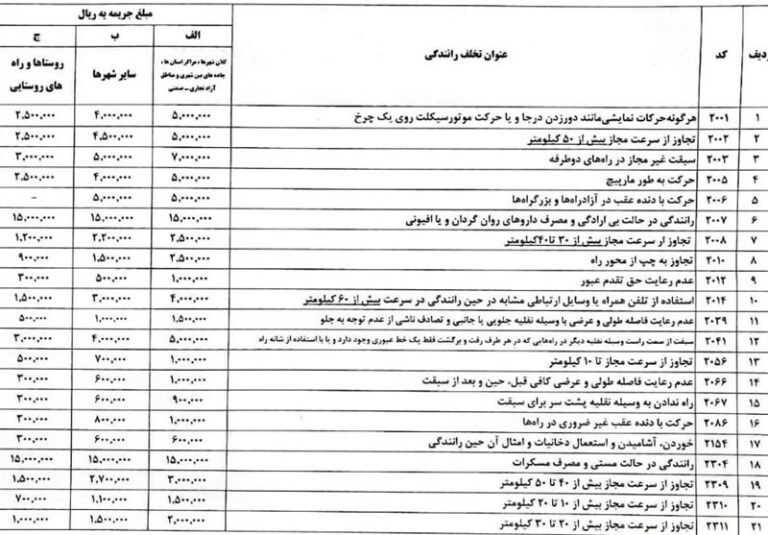 ردیف | کد | عنوان تخلف رانندگی | مبلغ جریمه به ریال
الف | ب | ج
کلان شهرها، مراکز استان ها، جاده های بین شهری و مناطق آزاد تجاری – صنعتی | سایر شهرها | روستاها و راه های روستایی
۱ | ۲۰۰۱ | هرگونه حرکات نمایشی مانند دورزدن درجا و یا حرکت موتورسیکلت روی یک چرخ | ۵,۰۰۰,۰۰۰ | ۴,۰۰۰,۰۰۰ | ۲,۵۰۰,۰۰۰
۲ | ۲۰۰۲ | تجاوز از سرعت مجاز بیش از ۵۰ کیلومتر | ۵,۰۰۰,۰۰۰ | ۴,۵۰۰,۰۰۰ | ۲,۵۰۰,۰۰۰
۳ | ۲۰۰۳ | سبقت غیر مجاز در راه‌های دوطرفه | ۷,۰۰۰,۰۰۰ | ۵,۰۰۰,۰۰۰ | ۳,۰۰۰,۰۰۰
۴ | ۲۰۰۵ | حرکت به طور مارپیچ | ۵,۰۰۰,۰۰۰ | ۴,۰۰۰,۰۰۰ | ۲,۵۰۰,۰۰۰
۵ | ۲۰۰۶ | حرکت با دنده عقب در آزادراه‌ها و بزرگراه‌ها | ۵,۰۰۰,۰۰۰ | ۵,۰۰۰,۰۰۰ | -
۶ | ۲۰۰۷ | رانندگی در حالت بی ارادگی و مصرف داروهای روان گردان و یا افیونی | ۱۵,۰۰۰,۰۰۰ | ۱۵,۰۰۰,۰۰۰ | ۱۵,۰۰۰,۰۰۰
۷ | ۲۰۰۸ | تجاوز ار سرعت مجاز بیش از ۳۰ تا۴۰کیلومتر | ۲,۵۰۰,۰۰۰ | ۲,۲۰۰,۰۰۰ | ۱,۲۰۰,۰۰۰
۸ | ۲۰۱۰ | تجاوز به چپ از محور راه | ۲,۵۰۰,۰۰۰ | ۱,۵۰۰,۰۰۰ | ۹۰۰,۰۰۰
۹ | ۲۰۱۲ | عدم رعایت حق تقدم عبور | ۱,۰۰۰,۰۰۰ | ۵۰۰,۰۰۰ | ۳۰۰,۰۰۰
۱۰ | ۲۰۱۴ | استفاده از تلفن همراه یا وسایل ارتباطی مشابه در حین رانندگی در سرعت بیش از ۶۰ کیلومتر | ۴,۰۰۰,۰۰۰ | ۳,۰۰۰,۰۰۰ | ۱,۵۰۰,۰۰۰
۱۱ | ۲۰۳۹ | عدم رعایت فاصله طولی و عرضی با وسیله نقلیه جلویی یا جانبی و تصادف ناشی از عدم توجه به جلو | ۱,۵۰۰,۰۰۰ | ۱,۰۰۰,۰۰۰ | ۵۰۰,۰۰۰
۱۲ | ۲۰۴۱ | سبقت از سمت راست وسیله نقلیه دیگر در راه‌هایی که در هر طرف رفت و برگشت فقط یک خط عبوری وجود دارد و یا با استفاده از شانه راه | ۵,۰۰۰,۰۰۰ | ۴,۰۰۰,۰۰۰ | ۳,۰۰۰,۰۰۰
۱۳ | ۲۰۵۶ | تجاوز از سرعت مجاز تا ۱۰ کیلومتر | ۱,۰۰۰,۰۰۰ | ۷۰۰,۰۰۰ | ۵۰۰,۰۰۰
۱۴ | ۲۰۶۶ | عدم رعایت فاصله طولی و عرضی کافی قبل، حین و بعد از سبقت | ۱,۰۰۰,۰۰۰ | ۶۰۰,۰۰۰ | ۳۰۰,۰۰۰
۱۵ | ۲۰۶۷ | راه ندادن به وسیله نقلیه پشت سر برای سبقت | ۹۰۰,۰۰۰ | ۶۰۰,۰۰۰ | ۳۰۰,۰۰۰
۱۶ | ۲۰۸۶ | حرکت با دنده عقب غیر ضروری در راه‌ها | ۱,۰۰۰,۰۰۰ | ۸۰۰,۰۰۰ | ۳۰۰,۰۰۰
۱۷ | ۲۱۵۴ | خوردن، آشامیدن و استعمال دخانیات و امثال آن حین رانندگی | ۶۰۰,۰۰۰ | ۶۰۰,۰۰۰ | ۳۰۰,۰۰۰
۱۸ | ۲۳۰۴ | رانندگی در حالت مستی و مصرف مسکرات | ۱۵,۰۰۰,۰۰۰ | ۱۵,۰۰۰,۰۰۰ | ۱۵,۰۰۰,۰۰۰
۱۹ | ۲۳۰۹ | تجاوز از سرعت مجاز بیش از ۴۰ تا ۵۰ کیلومتر | ۳,۰۰۰,۰۰۰ | ۲,۷۰۰,۰۰۰ | ۱,۵۰۰,۰۰۰
۲۰ | ۲۳۱۰ | تجاوز از سرعت مجاز بیش از ۱۰ تا ۲۰ کیلومتر | ۱,۵۰۰,۰۰۰ | ۱,۱۰۰,۰۰۰ | ۷۰۰,۰۰۰
۲۱ | ۲۳۱۱ | تجاوز از سرعت مجاز بیش از ۲۰ تا ۳۰ کیلومتر | ۲,۰۰۰,۰۰۰ | ۱,۵۰۰,۰۰۰ | ۱,۰۰۰,۰۰۰